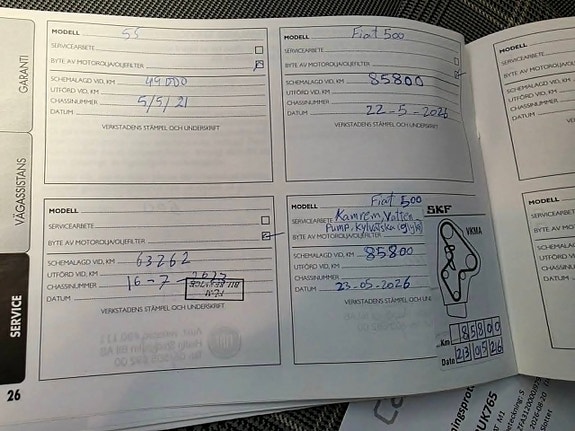 GARANTI
VÄGASSISTANS
SERVICE
26
MODELL 55
SERVICEARBETE
BYTE AV MOTOROLJA/OLJEFILTER
SCHEMALAGD VID, KM 49000
UTFÖRD VID, KM
CHASSINUMMER 5/5/21
DATUM
VERKSTADENS STÄMPEL OCH UNDERSKRIFT
MODELL Fiat 500
SERVICEARBETE
BYTE AV MOTOROLJA/OLJEFILTER
SCHEMALAGD VID, KM 85800
UTFÖRD VID, KM
CHASSINUMMER
DATUM 22-5-2026
VERKSTADENS STÄMPEL OCH UNDERSKRIFT
MODELL
SERVICEARBETE
BYTE AV MOTOROLJA/OLJEFILTER
SCHEMALAGD VID, KM 63262
UTFÖRD VID, KM
CHASSINUMMER 16-7-
DATUM
VERKSTADENS STÄMPEL OCH UNDERSKRIFT
MODELL Fiat 500
SERVICEARBETE Kamrem, Vatten
Pump, kylvätska
BYTE AV MOTOROLJA/OLJEFILTER
SCHEMALAGD VID, KM 85800
UTFÖRD VID, KM
CHASSINUMMER
DATUM 23-05-2026
VERKSTADENS STÄMPEL OCH UNDERSKRIFT
SKF
VKMA
Km 85800
Date 230526
MODELL
SERVICEARBETE
BYTE AV
SCHEMALAGD
UTFÖRD VID,
CHASSINUMMER
DATUM
MODELL
SERVICEARBETE
BYTE AV MOTO
SCHEMALAGD
UTFÖRD VID, K
CHASSINUMMER
DATUM
UK765